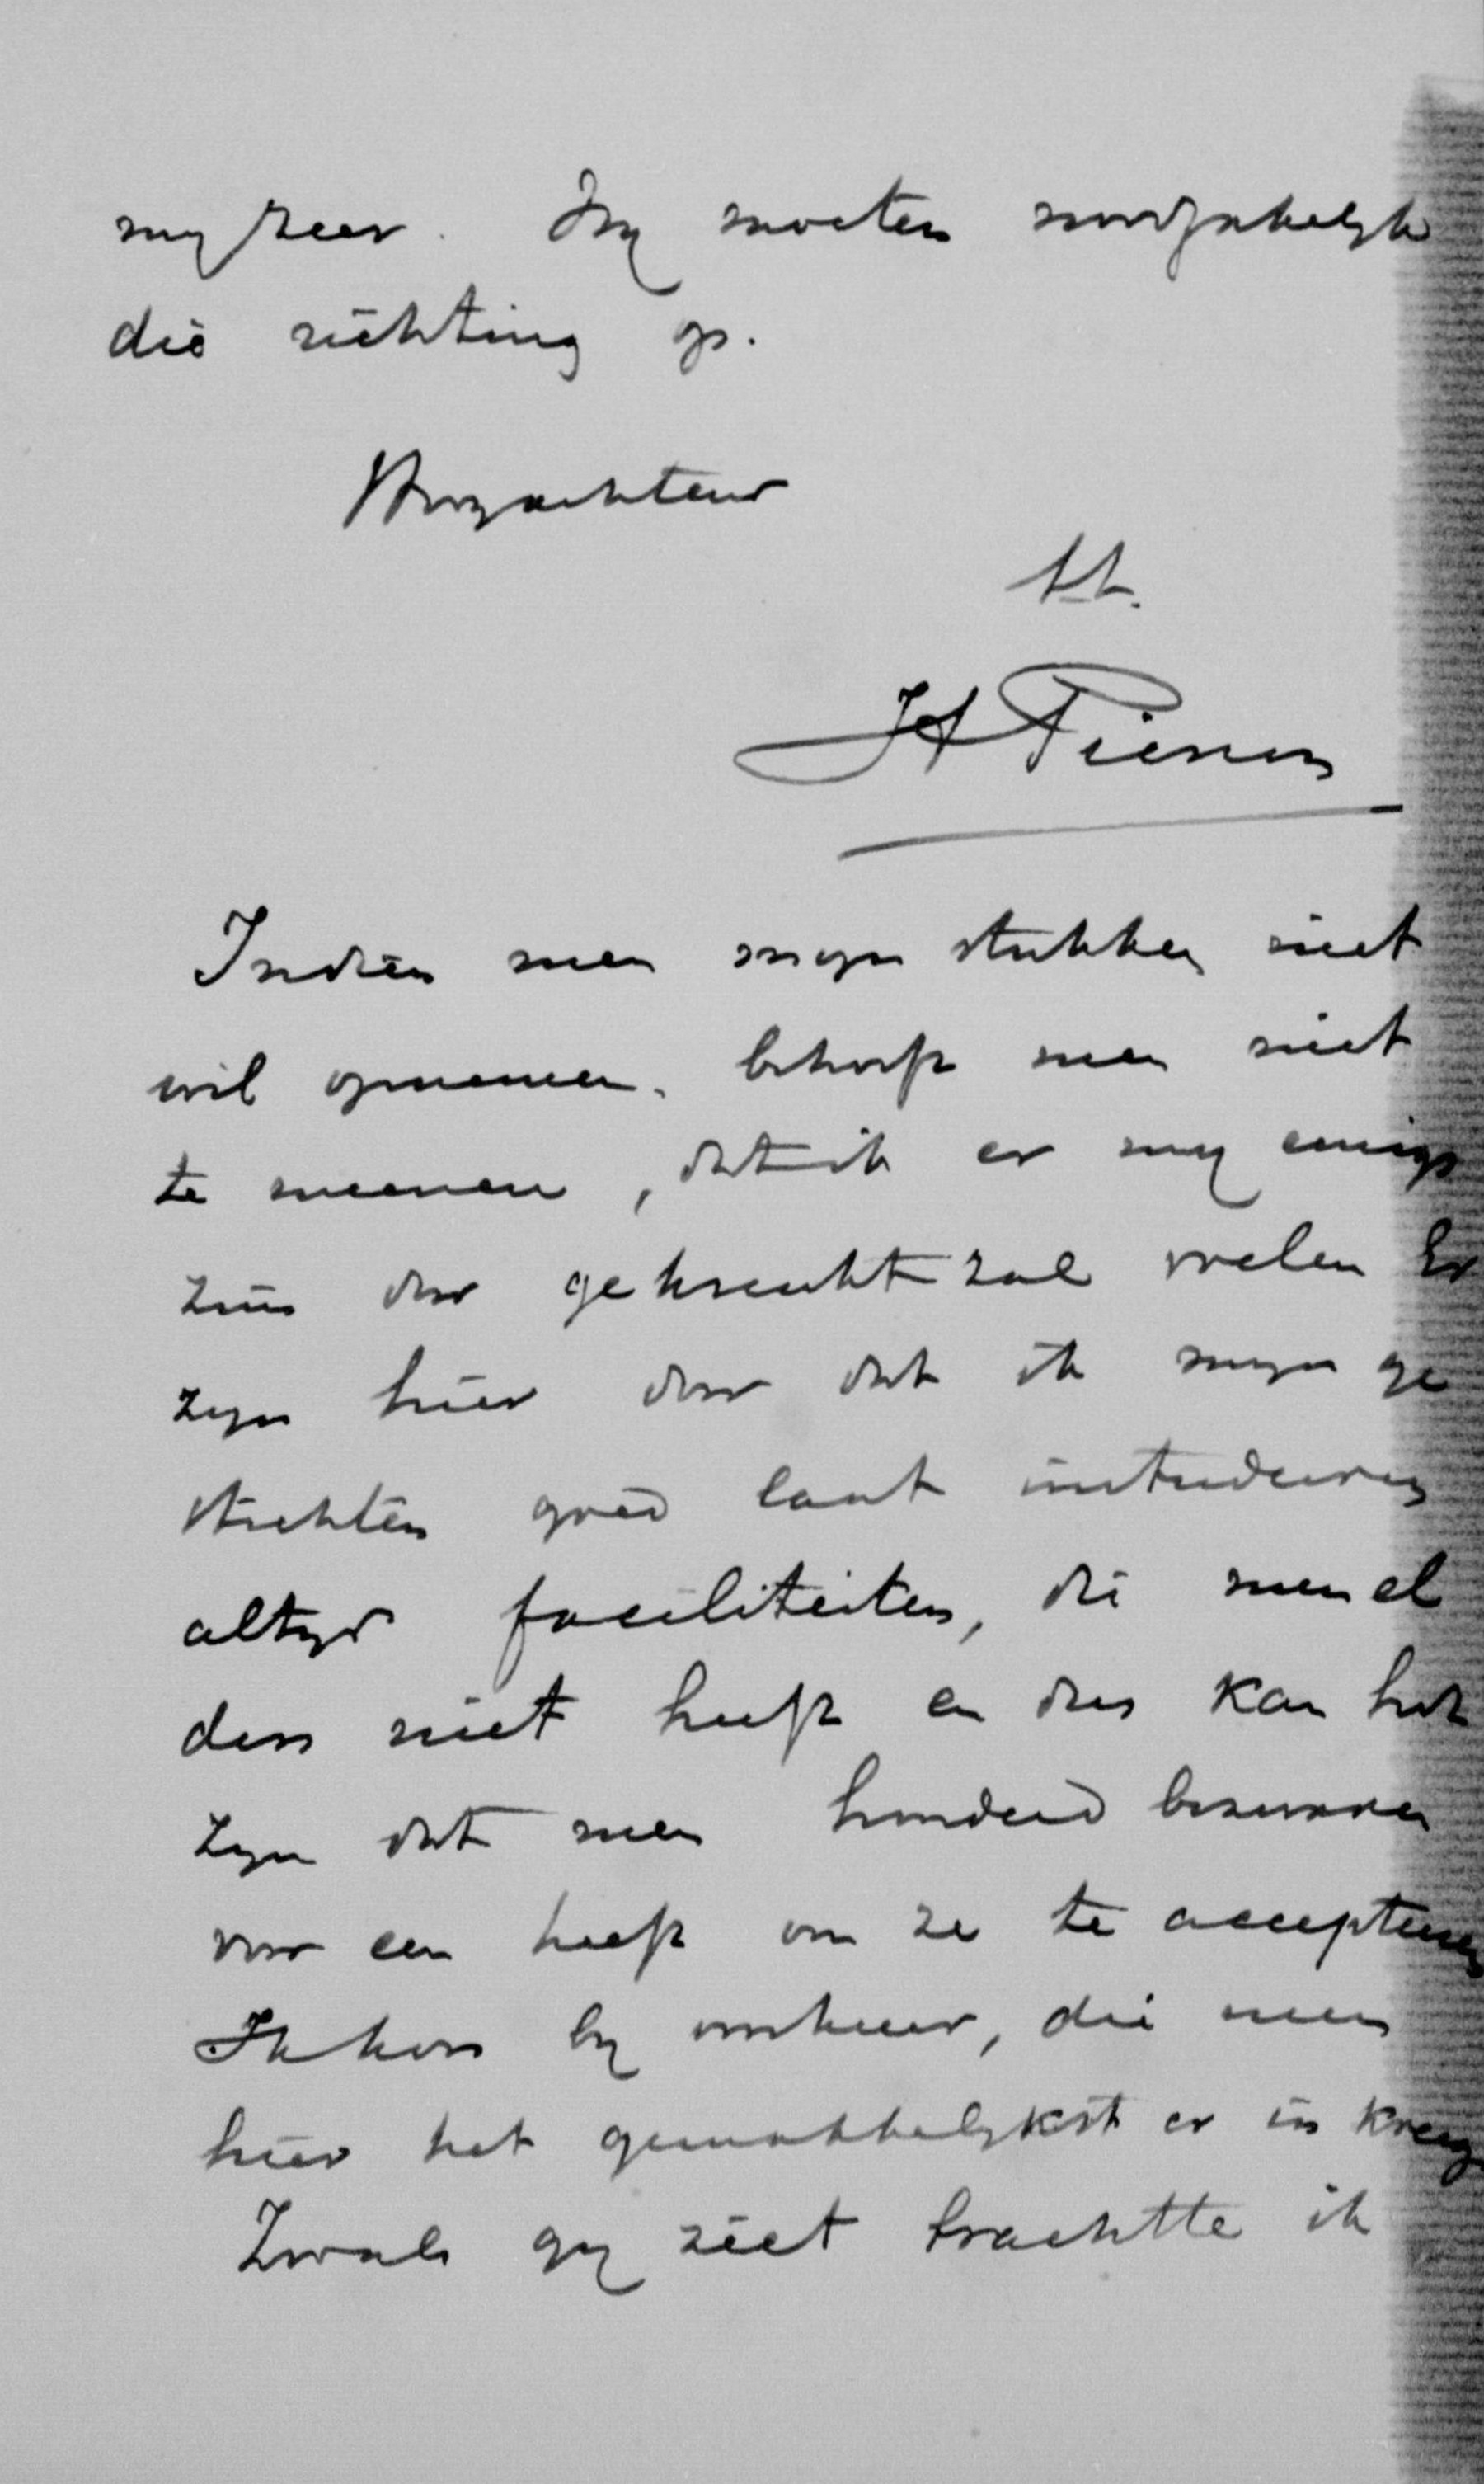 my zeer. Zy moeten noodzakelyk
die richting op.
Hoogachtend
t.t.
Indien men myn stukken niet
wil opnemen. behoeft men niet
te meenen, dat ik er my eenigs
zins door gekrenkt zal voelen Er
zyn hier door dat ik myn ge
stichten goed laat instudeeren
altyd faciliteiten, die men el
ders niet heeft en dus kan het
zyn dat men honderd bezwaren
voor een heeft om ze te accepteeren
Ik koos by voorkeur, die men
hier het gemakkelykst er in kreeg
Zooals gy ziet trachtte ik